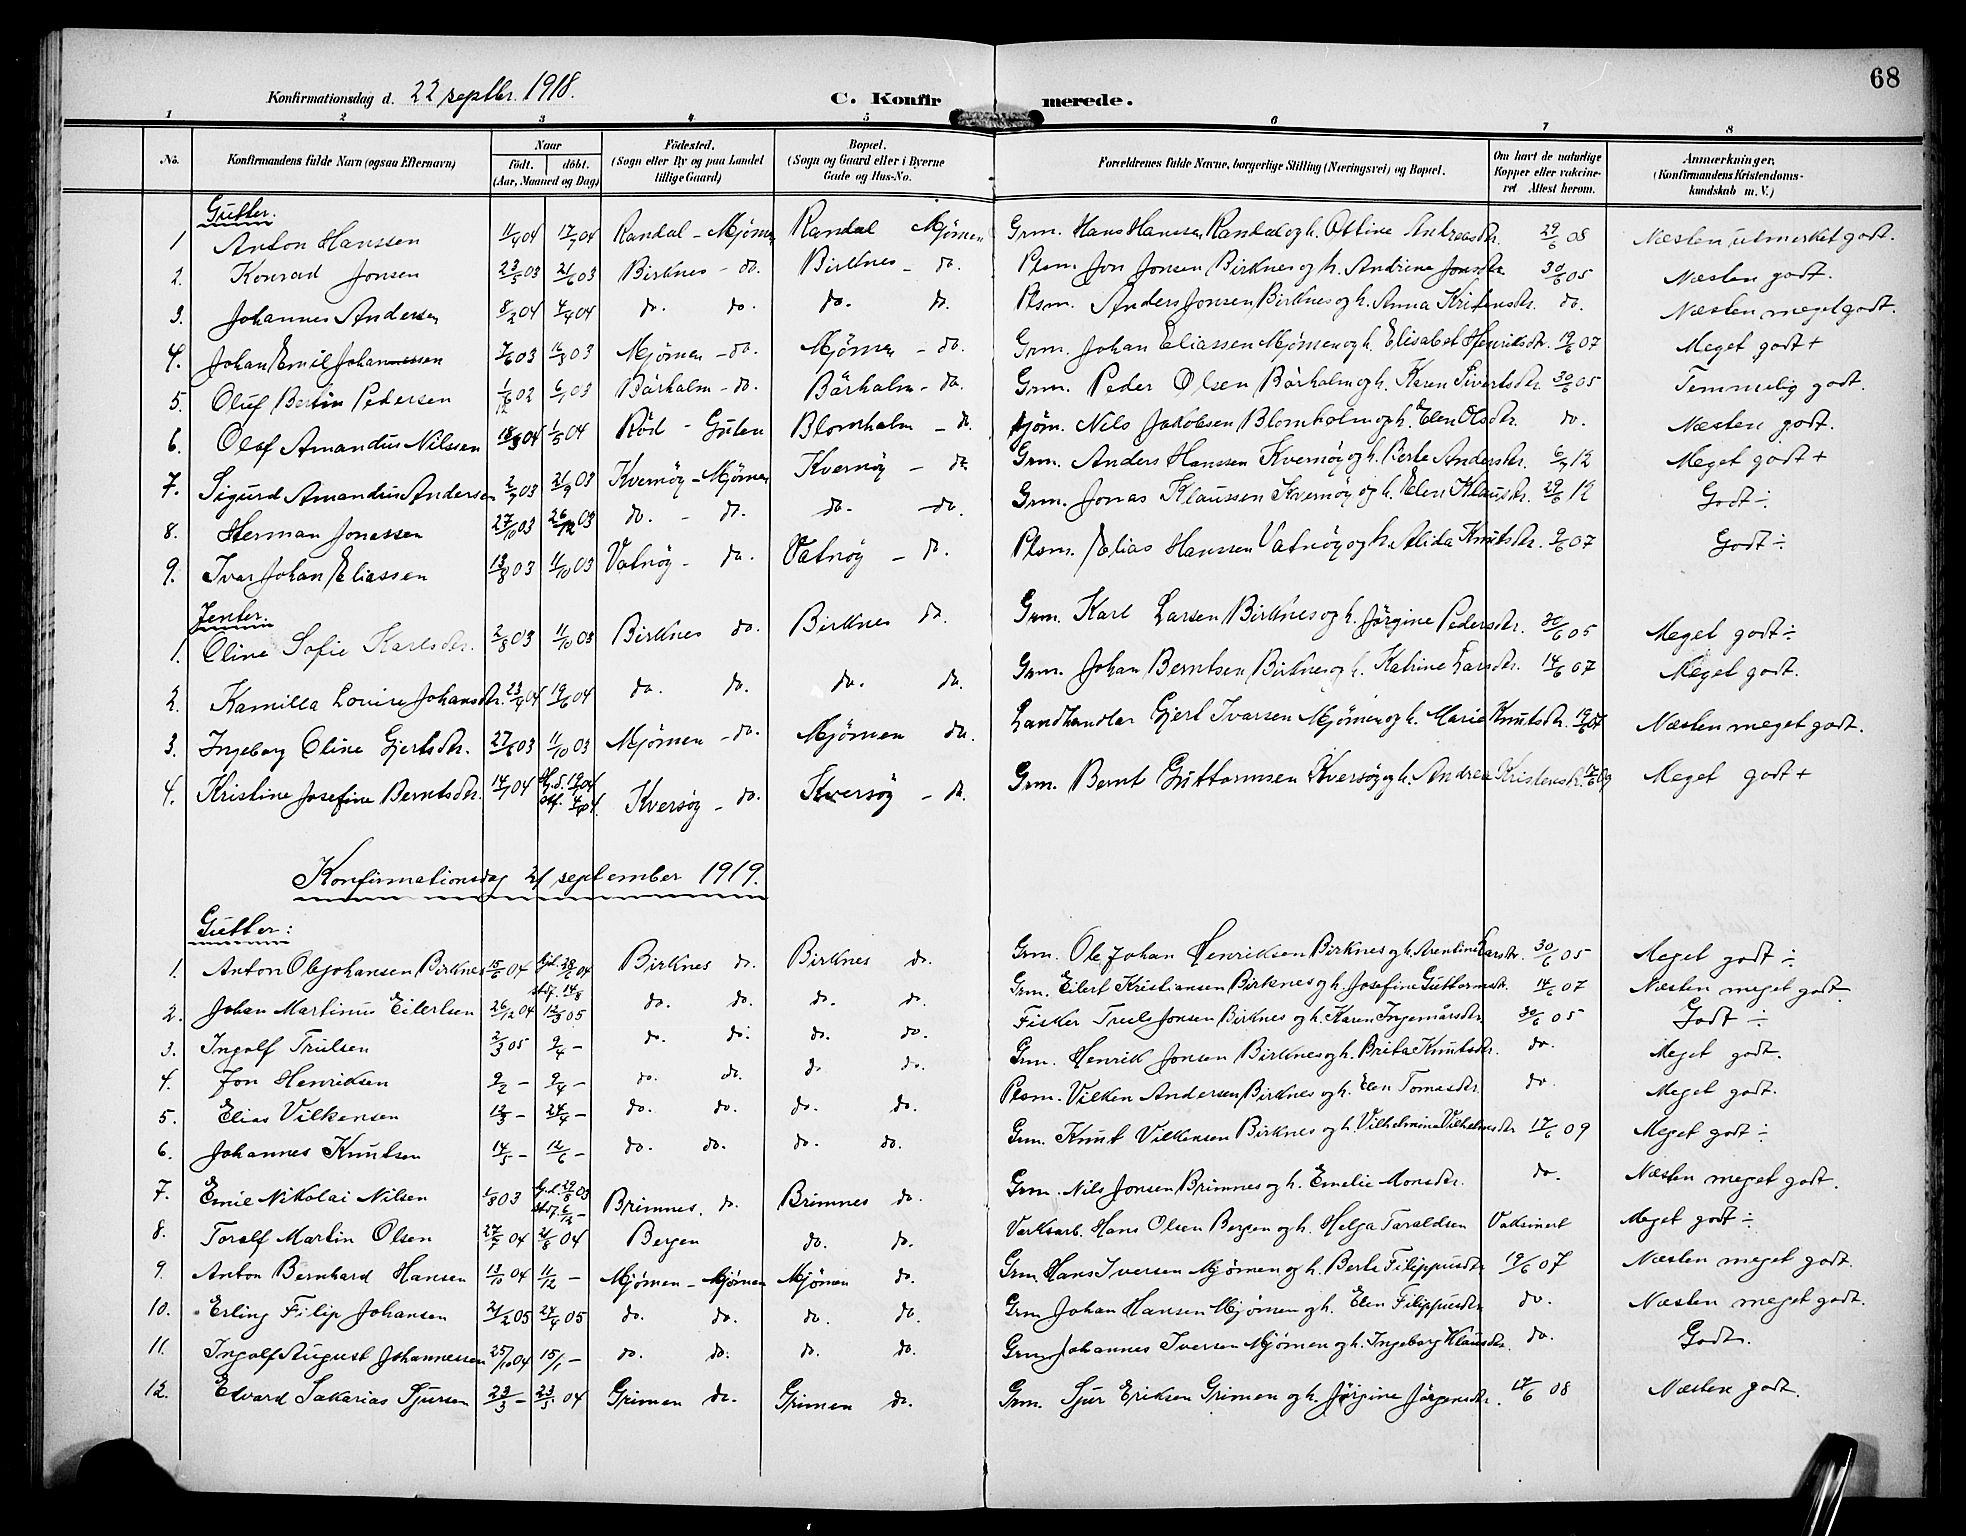 68
Konfirmationsdag d. 22 septbr. 1918.
C. Konfirmerede.
1 2 3 4 5 6 7 8
No. Konfirmandens fulde Navn (ogsaa Efternavn) Naar født. døbt. (Aar, Maaned og Dag) Fødested. (Sogn eller By og paa Landet tillige Gaard) Bopæl. (Sogn og Gaard eller i Byerne Gade og Hus-No. Forældrenes fulde Navne, borgerlige Stilling (Næringsvei) og Bopæl. Om havt de naturlige Kopper eller vakcineret Attest herom. Anmærkninger. (Konfirmandens Kristendomskundskab m. V.)
Gutter.
1 Anton Hanssen 11/4 04 17/7 04 Randal - Mjømen Randal Mjømen Grm. Hans Hanssen Randal og h. Ottine Andreasdr. 29/6 08 Næsten utmerket godt.
2. Konrad Jonsen 23/5 03 21/6 03 Birknes - do. Birknes - do. Plsm. Jon Jonsen Birknes og h. Andrine Jonsdr. 30/6 05 Næsten godt.
3. Johannes Andersen 8/2 04 4/4 04 do. do. do. do. Plsm. Anders Jonsen Birknes og h. Anna Kristensdr. do. Næsten meget godt.
4. Johan Emil Johannessen 7/6 03 16/8 03 Mjømen - do. Mjømen - do. Grm. Johan Eliassen Mjømen og h. Elisabet Henriksdr. 19/6 07 Meget godt +
5. Oluf Bertin Pedersen 1/12 02 6/1 03 Bårholm - do. Bårholm - do. Grm. Peder Olsen Bårholm og h. Karen Sivertsdr. 30/6 05 Temmelig godt.
6. Olaf Amandus Nilssen 18/3 04 1/5 04 Röd - Gulen Blomholm - do. Nils Jakobsen Blomholm og h. Elen Olsdr. do. Næsten godt.
7. Sigurd Amandus Andersen 2/7 03 21/9 03 Kvernøy - Mjømen Kvernøy - do. Grm. Anders Hanssen Kvernøy og h. Berte Andersdr. 6/7 12 Meget godt +
8. Herman Jonassen 27/10 03 26/12 03 do. - do. do. - do. Grm. Jonas Klaussen Kvernøy og h. Elen Klausdr. 29/6 12 Godt ÷
9. Ivar Johan Eliassen 13/8 03 11/10 03 Vatnøy - do. Vatnøy - do. Plsm. Elias Hanssen Vatnøy og h. Alida Knutsdr. 9/6 07 Godt ÷
Jenter.
1. Oline Sofie Karlsdr. 2/8 03 11/10 03 Birknes do. Birknes do. Grm. Karl Larsen Birknes og h. Jörgine Pedersdr. 30/6 05 Meget godt ÷
2. Kamilla Lovise Johansdr. 23/4 04 19/6 04 do. do. do. do. Grm. Johan Berntsen Birknes og h. Katrine Larsdr. 14/6 07 Meget godt.
3. Ingeborg Oline Gjertsdr. 27/6 03 11/10 03 Mjømen - do. Mjømen do. Landhandler Gjert Ivarsen Mjømen og h. Marie Knutsdr. 19/6 07 Næsten meget godt.
4. Kristine Josefine Berntsdr. 14/1 04 Hj.d. 19/1 04 Kversøy - do. Kversøy - do. Grm. Bernt Guttormsen Kversøy og h. Andrea Kristensdr. 17/6 09 Meget godt +
Konfirmationsdag 21 september 1919.
Gutter:
1. Anton Olejohansen Birknes 15/6 04 Hj.d. 28/6 04 stadf. 14/8 Birknes do. Birknes do. Grm. Ole Johan Henriksen Birknes og h. Arentine Larsdr. 30/6 05 Meget godt ÷
2. Johan Martinus Eilertsen 26/12 04 12/3 05 do. do. do. do. Grm. Eilert Kristiansen Birknes og h. Josefine Guttormsdr. 14/6 07 Næsten meget godt
3. Ingolf Trulsen 2/3 05 9/4 - do. do. do. do. Fisker Truls Jonsen Birknes og h. Karen Ingemårsdr. 30/6 05 Godt ÷
4. Jon Henriksen 9/2 - 9/4 - do. do. do. do. Grm. Henrik Jonsen Birknes og h. Brita Knutsdr. do. Meget godt.
5. Elias Vilkensen 13/3 - 24/4 - do. do. do. do. Plsm. Vilken Andersen Birknes og h. Elen Tomasdr. do. Meget godt.
6. Johannes Knutsen 14/5 - 12/6 - do. do. do. do. Grm. Knut Vilkensen Birknes og h. Vilhelmina Vilhelmsdr 17/6 09 Meget godt ÷
7. Emil Nikolai Nilsen 1/8 03 Hj.d. 29/8 03 stadf. 6/12 - Brimnes, do. Brimnes do. Grm. Nils Jonsen Brimnes og h. Emelie Monsdr. do. Næsten meget godt.
8. Toralf Martin Olsen 27/7 04 21/8 04 Bergen do. do. Verksarb. Hans Olsen Bergen og h. Helga Taraldsen Vaksinert Meget godt ÷
9. Anton Bernhard Hansen 13/10 04 11/12 - Mjømen - Mjømen Mjømen do. Grm Hans Iversen Mjømen og h. Berte Filippusdr 19/6 07 Næsten meget godt.
10. Erling Filip Johansen 21/2 05 24/4 05 do. do. do. do. Grm Johan Hansen Mjømen og h. Elen Filippusdr do. Næsten meget godt.
11. Ingolf August Johannessen 25/10 04 15/1 - do. do. do. do. Grm Johannes Iversen Mjømen og h. Ingeborg Klausdr. do. Godt.
12. Edvard Sakarias Sjursen 23/3 - 23/5 04 Grimen do. Grimen do. Grm. Sjur Eriksen Grimen og h. Jörgine Jörgensdr. 17/6 08 Næsten godt.